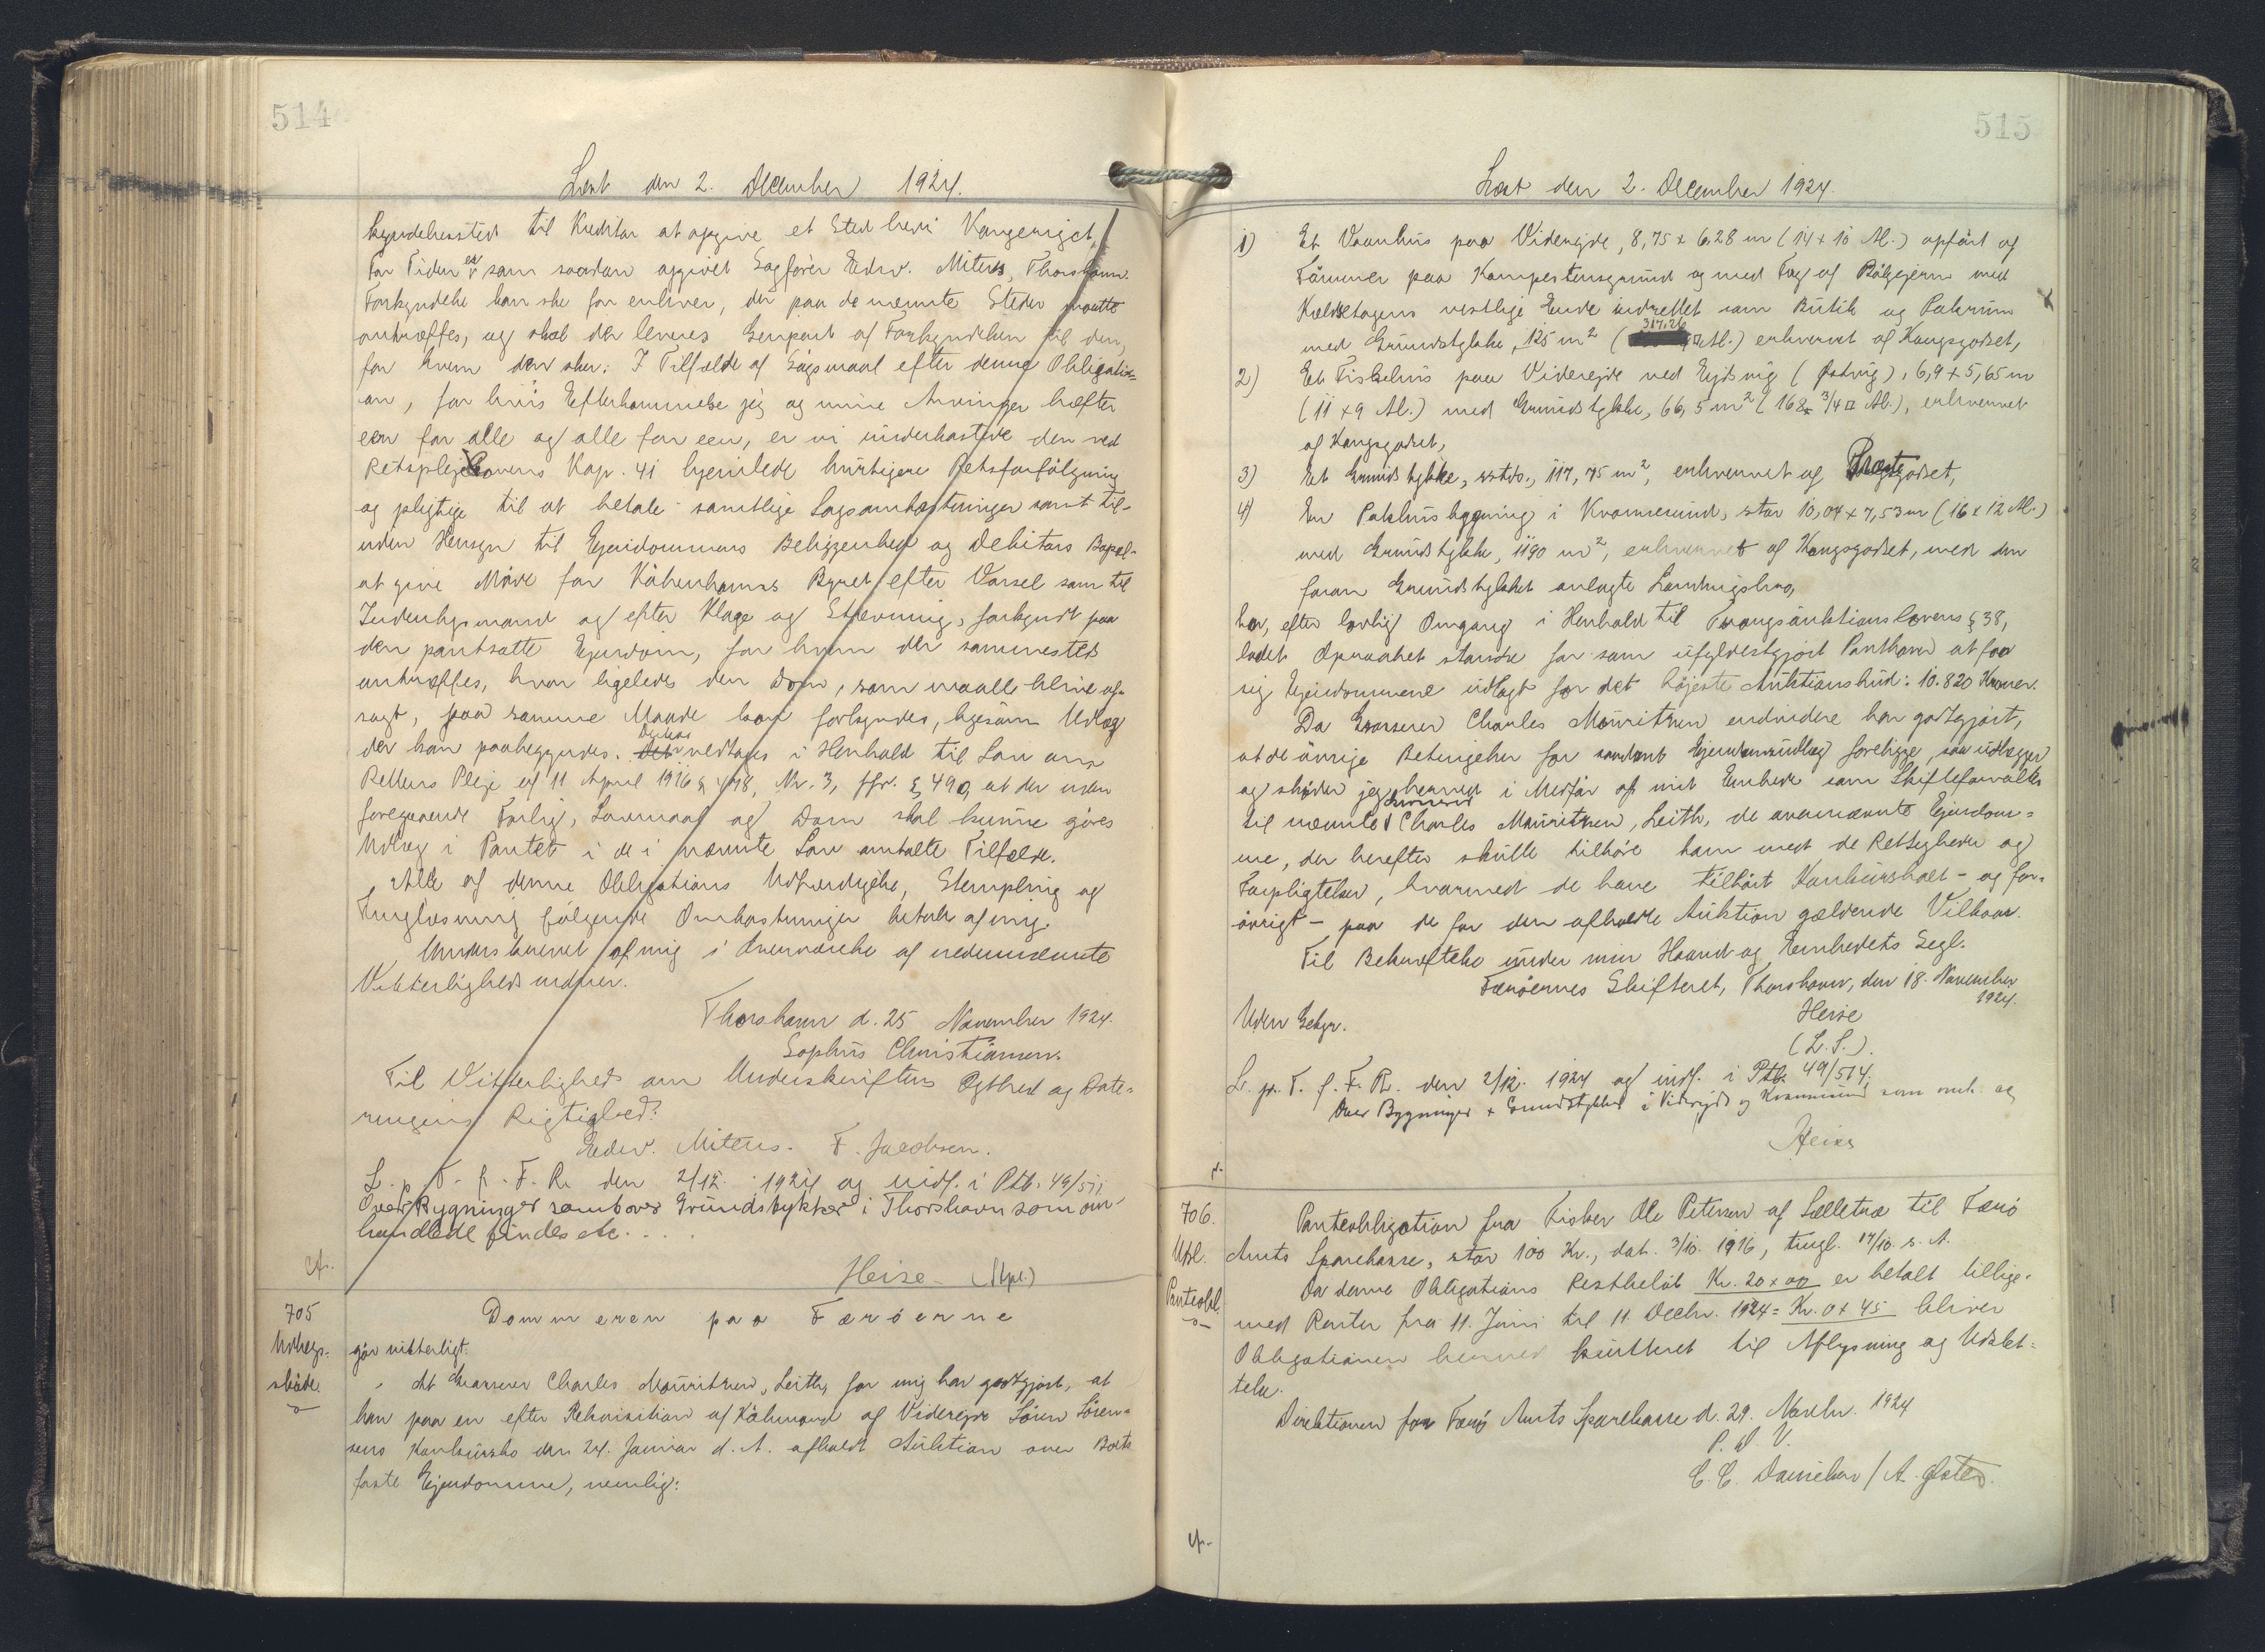 514
Læst den 2. December 1924.
kyndelsessted til Kreditor at opgive et Sted heri Kongeriget,
For Tiden er som saadan opgivet Sagfører Edw. Mitens, Thorshavn.
Forkyndelse kan ske for enhver, der paa de nævnte Steder maatte
antræffes, og skal der leveres Genpart af Forkyndelsen til den,
for hvem den sker. I Tilfælde af Søgsmaal efter denne Obligati-
on, for hvis Efterkommelse jeg og mine Arvinger hæfter
een for alle og alle for een, er vi underkastede den ved
Retsplejelovens Kap. 41 hjemlede hurtigere Retsforfølgning
og pligtige til at betale samtlige Sagsomkostninger samt til-
uden Hensyn til Ejendommens Beliggenhed og Debitors Bopæl-
at give Møde for Københavns Byret efter Varsel som til
Indenbysmand og efter Klage og Stævning, forkyndt paa
den pantsatte Ejendom, for hvem der sammesteds
antræffes, hvor ligeledes den Dom, som maatte blive af-
sagt, paa samme Maade kan forkyndes, ligesom Udlæg
der kan paabegyndes. vedtages i Henhold til Lov om
Rettens Pleje af 11 April 1916 § 478, Nr. 3, jfr. § 490, at der uden
foregaaende Forlig, Lovmaal og Dom skal kunne gøres
Udlæg i Pantet i de i nævnte Lov omtalte Tilfælde.
Alle af denne Obligations Udfærdigelse, Stempling og
Tinglæsning følgende Omkostninger betales af mig.
Underskrevet af mig i Overværelse af nedennævnte
Vitterlighedsvidner.
Thorshavn d. 25 November 1924.
Sophus Christiansen.
Til Vitterlighed om Underskriftens Ægthed og Date-
ringens Rigtighed:
Edw. Mitens. F. Jacobsen.
L. p. T. f. F. R. den 2/12. 1924 og indf. i Ptb. 49/511.
Over Bygninger samt over Grundstykker i Thorshavn som om-
handlede findes etc. . . .
Heise
705
Udlægs-
skøde.
Dommeren paa Færøerne
gør vitterligt:
At Grosserer Charles Mouritzen, Leith, for mig har godtgjort, at
han paa en efter Rekvisition af Købmand af Viderejde Søren Søren-
sens Konkursbo den 24. Januar d. A. afholdt Auktion over Boets
faste Ejendomme, nemlig:
515
Læst den 2. December 1924.
1) Et Vaanhus paa Viderejde, 8,75 x 6,28 m (14 x 10 Al.) opført af
Tømmer paa Kampestensgrund og med Tag af Bølgejern med
Kældretagens vestlige Ende indrettet som Butik og Pakrum
med Grundstykke, 125 m² (317,26 □Al.) erhvervet af Kongsgodset,
2) Et Fiskehus paa Viderejde ved Ejdsvig (Østvig), 6,9 x 5,65 m
(11 x 9 Al.) med Grundstykke, 66,5 m² (168 3/4 □ Al.), erhvervet
af Kongsgodset,
3) Et Grundstykke, sstds., 117,75 m², erhvervet af Præstegodset,
4) En Pakhusbygning i Kvannesund, stor 10,04 x 7,53 m (16 x 12 Al.)
med Grundstykke, 1190 m², erhvervet af Kongsgodset, med den
foran Grundstykket anlagte Landingsbro,
har, efter lovlig Omgang i Henhold til Tvangsauktionslovens § 38,
ladet Opraabet standse for som ufyldestgjort Panthaver at faa
sig Ejendommene udlagt for det højeste Auktionsbud: 10.820 Kroner.
Da Grosserer Charles Mouritzen endvidere har godtgjort,
at de øvrige Betingelser for saadant Ejendomsudlæg foreligge, saa udlægger
og skøder jeg herved i Medfør af mit Embede som Skifteforvalter
til nævnte Grosserer Charles Mouritzen, Leith, de ovennævnte Ejendom-
me, der herefter skulle tilhøre ham med de Rettigheder og
Forpligtelser, hvormed de have tilhørt Konkursboet - og for-
øvrigt - paa de for den afholdte Auktion gældende Vilkaar.
Til Bekræftelse under min Haand og Embedets Segl.
Færøernes Skifteret, Thorshavn, den 18. November
1924.
Heise
(L. S.).
Uden Gebyr.
L. p. T. f. F. R. den 2/12. 1924 og indf. i Ptb. 49/514.
Over Bygninger & Grundstykker i Viderejde og Kvannesund som omh.
Heise
706.
Udsl.
Panteobl.
Panteobligation fra Fisker Ole Petersen af Selletræ til Færø
Amts Sparekasse, stor 100 Kr., dat. 3/10. 1916, tingl. 17/10. s. A.
Da denne Obligations Restbeløb Kr. 20 x 00 er betalt tillige-
med Renter fra 11. Juni til 11. Decbr. 1924 = Kr. 0 x 45 bliver
Obligationen herved kvitteret til Aflysning og Udslet-
telse.
Direktionen for Færø Amts Sparekasse d. 29. Novbr. 1924
P. D. V.
C. C. Danielsen / A. Østerø.